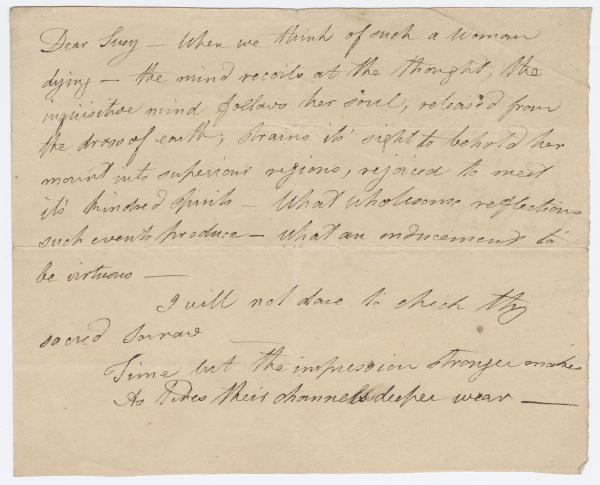 Dear Susy – When we think of such a Woman
dying – the mind recoils at the thought, the
inquisitive mind follows her soul, released from
the dross of earth, strains its' sight to behold her
mount into superiour regions, rejoiced to meet
it's kindred spirits – What wholesome reflections
such events produce – what an inducement to
be virtuous —
I will not dare to check thy
sacred sorrow —
Time but the impression stronger makes
As Tides their channels deeper wear —